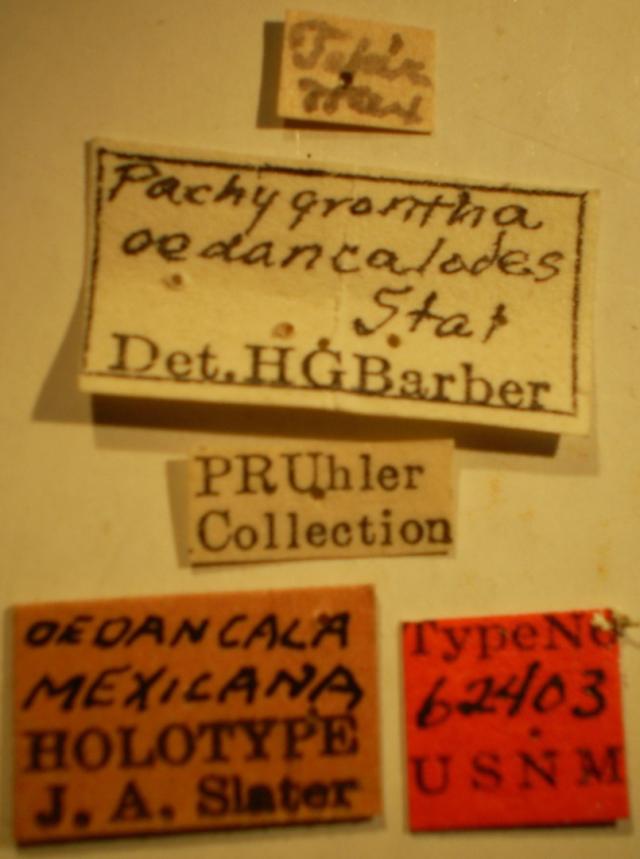 Mex
Pachygrontha
oedancalodes
Stal
Det. HGBarber
PRUhler
Collection
OEDANCALA
MEXICANA
HOLOTYPE
J. A. Slater
TypeNo
62403
USNM